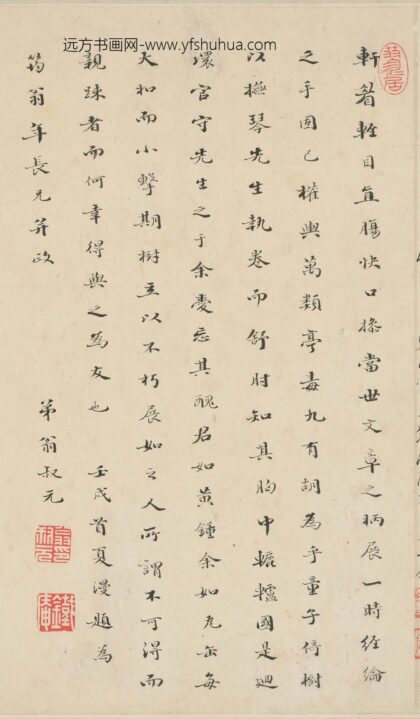 远方书画网-www.yfshuhua.com
軒眉輊目直腸快口操當世文章之柄展一時經綸
之手固已權輿萬類亭毒九有胡為乎童子倚樹
以撫琴先生執卷而舒肘知其胸中轆轤國是迴
環官守先生之于余忘其醜君如黃鍾余如瓦缶每
大扣而小擊期樹立以不朽展如之人所謂不可得而
親踈者而何幸得與之為友也 壬戌首夏漫題為
筠翁年長兄并政 弟翁叔元
鐵庵